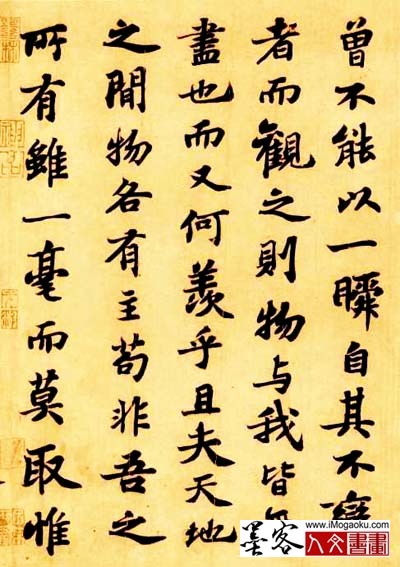 曾不能以一瞬自其不變
者而觀之則物与我皆無
盡也而又何羨乎且夫天地
之間物各有主苟非吾之
所有雖一毫而莫取惟
墨客
www.iMogaoku.com
人文書畫